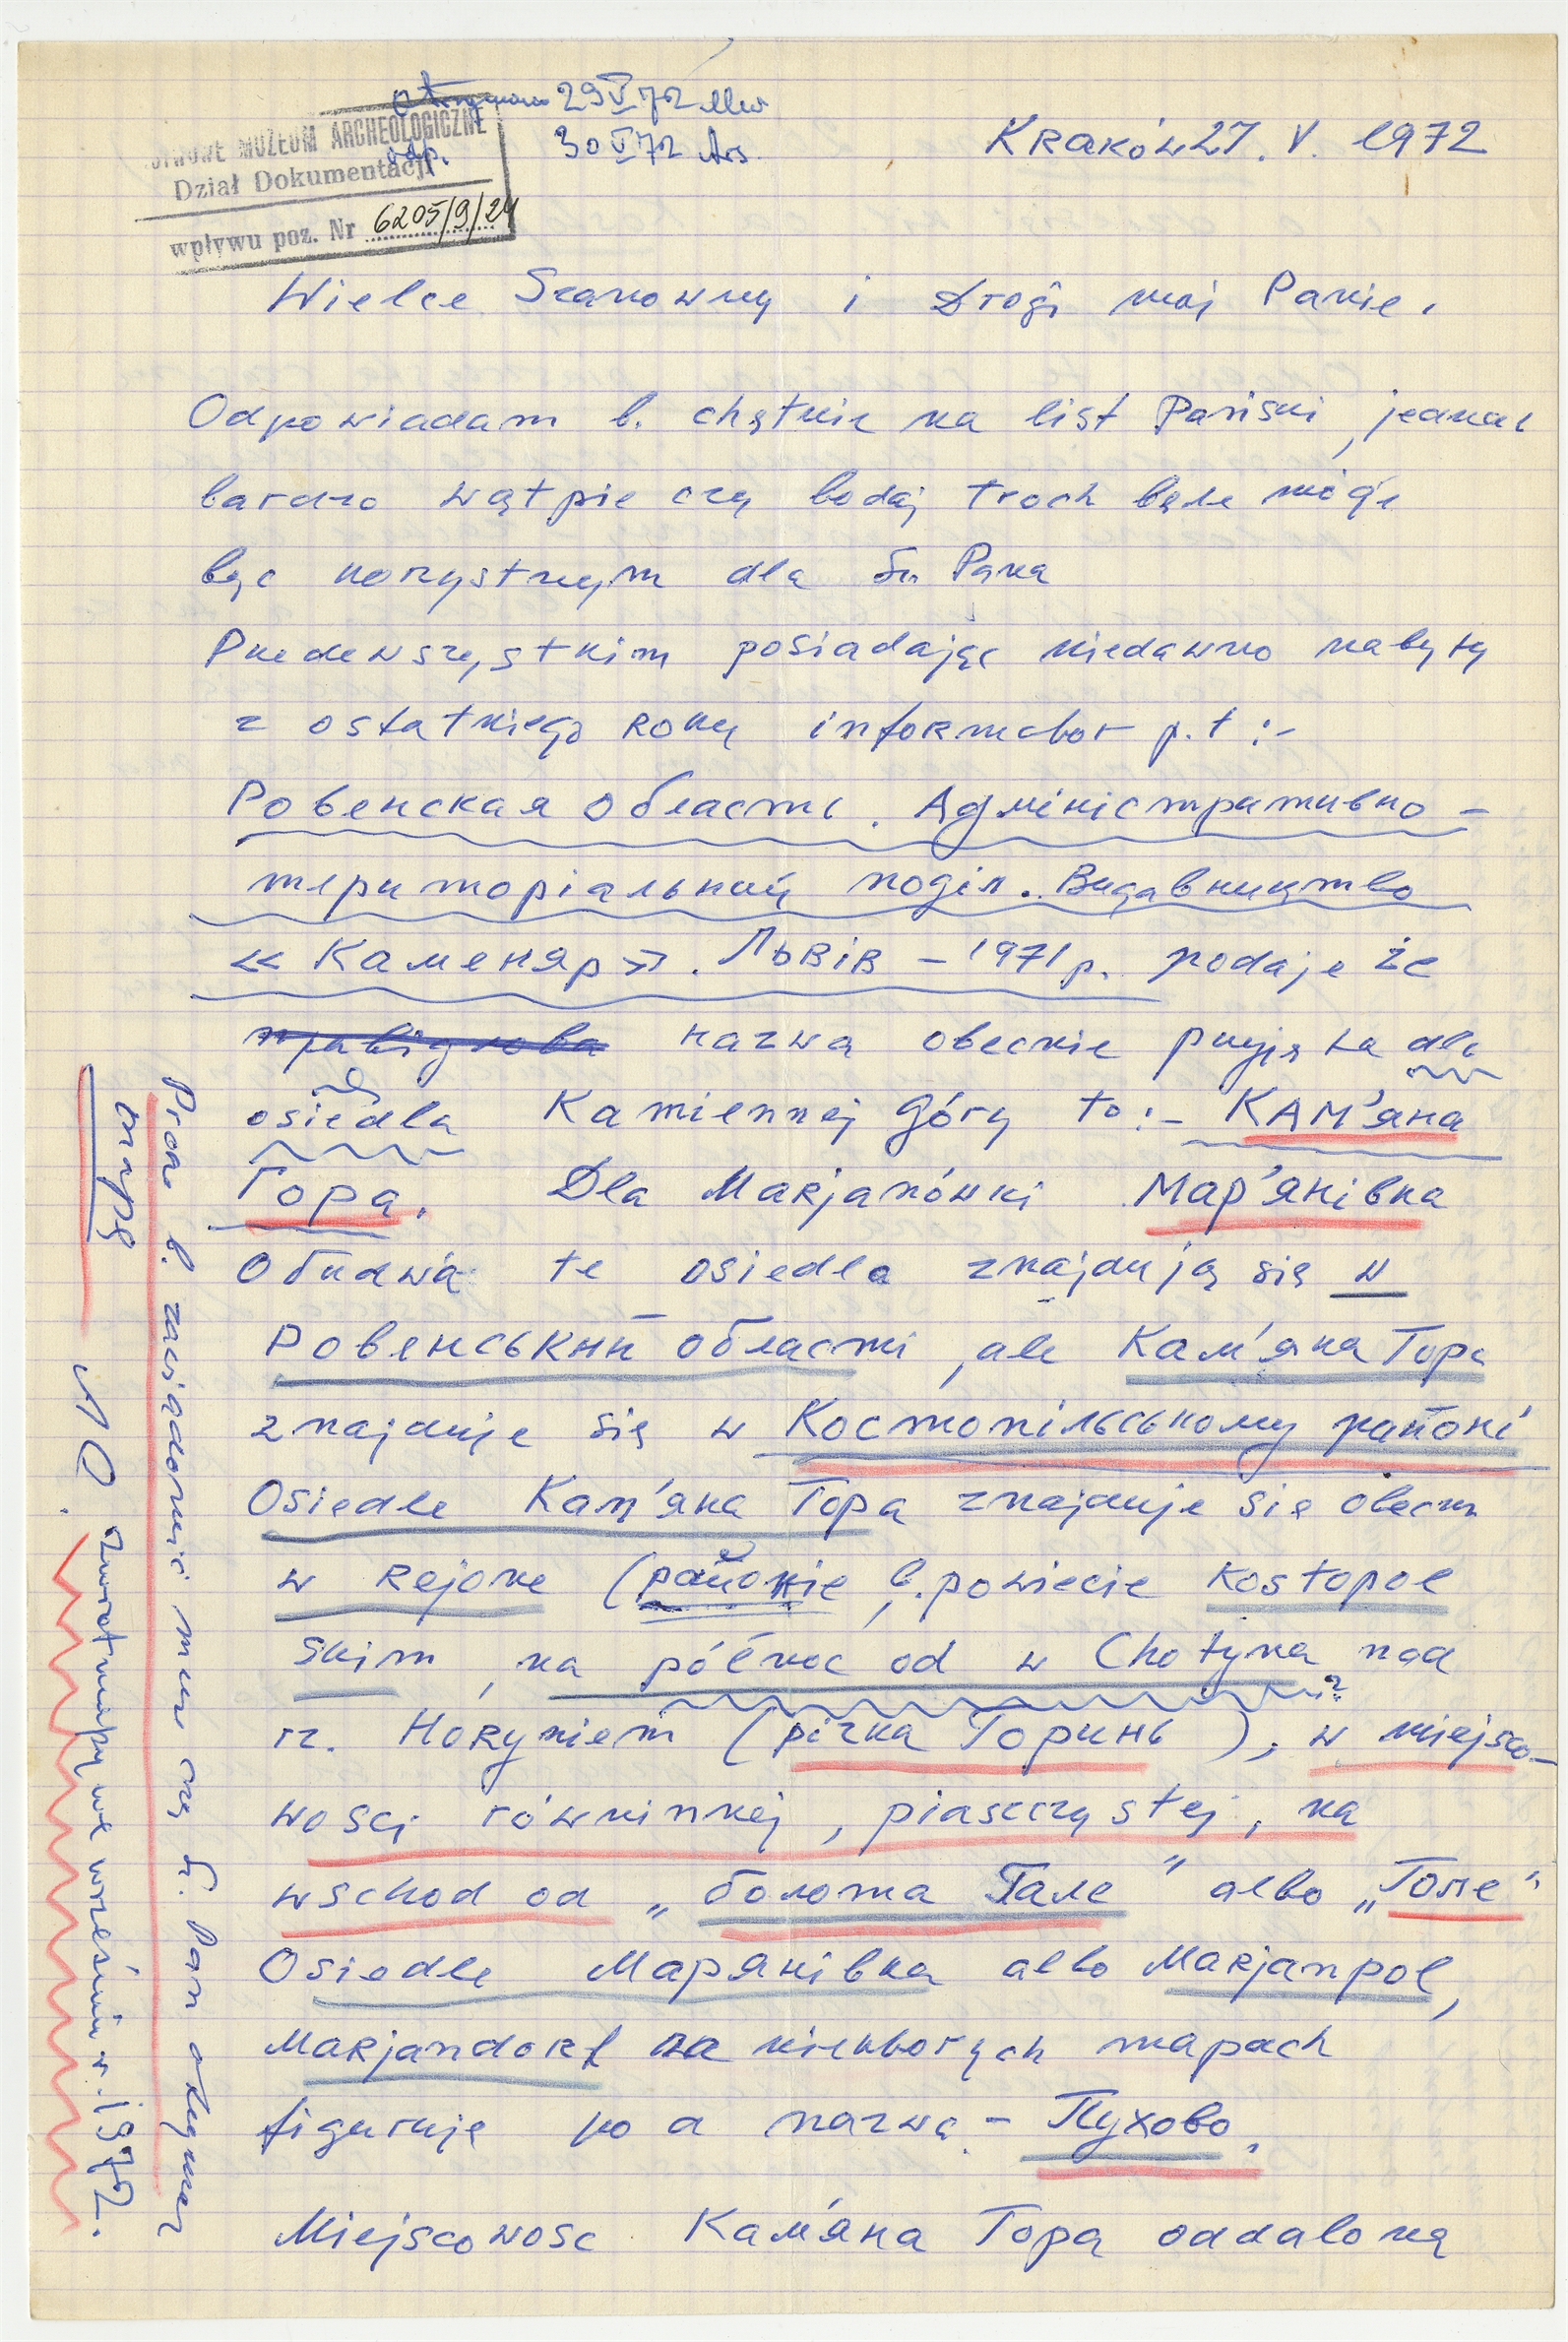 Otrzymano 29 V 72
odp. 30 V 72
MUZEUM ARCHEOLOGICZNE
Dział Dokumentacji
wpływu poz. Nr 6205/9/24
Kraków 27. V. 1972
Wielce Szanowny i Drogi mój Panie.
Odpowiadam b. chętnie na list Pański, jednak
bardzo wątpie czy bodaj troch będe mógł
być korzystnym dla Sz Pana
Przedewszystkim posiadając niedawno nabyty
z ostatniego roku informator p.t :-
Ровенская область. Адміністративно -
територіальний поділ. Видавництво
« Каменяр ». Львів - 1971 р. podaje że
nazwa obecnie przyjęta dla
osiedla Kamiennej Góry to :- КАМ'яна
Гора. Dla Marjanówki Мар'янівка
Obudwa te osiedla znajdują się w
Ровенський області, ale Кам'яна Гора
znajduje się w Костопільському районі
Osiedle Кам'яна Гора znajduje się obecn
w Rejone (районie b. powiecie Kostopol
skim, na północ od w Chotyna nad
rz. Horyniem (річка Горинь), w miejsco-
wosci równinnej, piaszczystej, na
wschod od „болота Гале" albo „Голе"
Osiedle Марянівка albo Marjanpol,
Marjandorf na niektorych mapach
figuruje po a nazwą - Пухово.
Miejscowosc Кам'яна Гора oddaloną
Prosze b. zawiadomić mnie czy Sz. Pan otrzymał
mapę
NO. Zwrot mapy we wrześniu r. 1972.